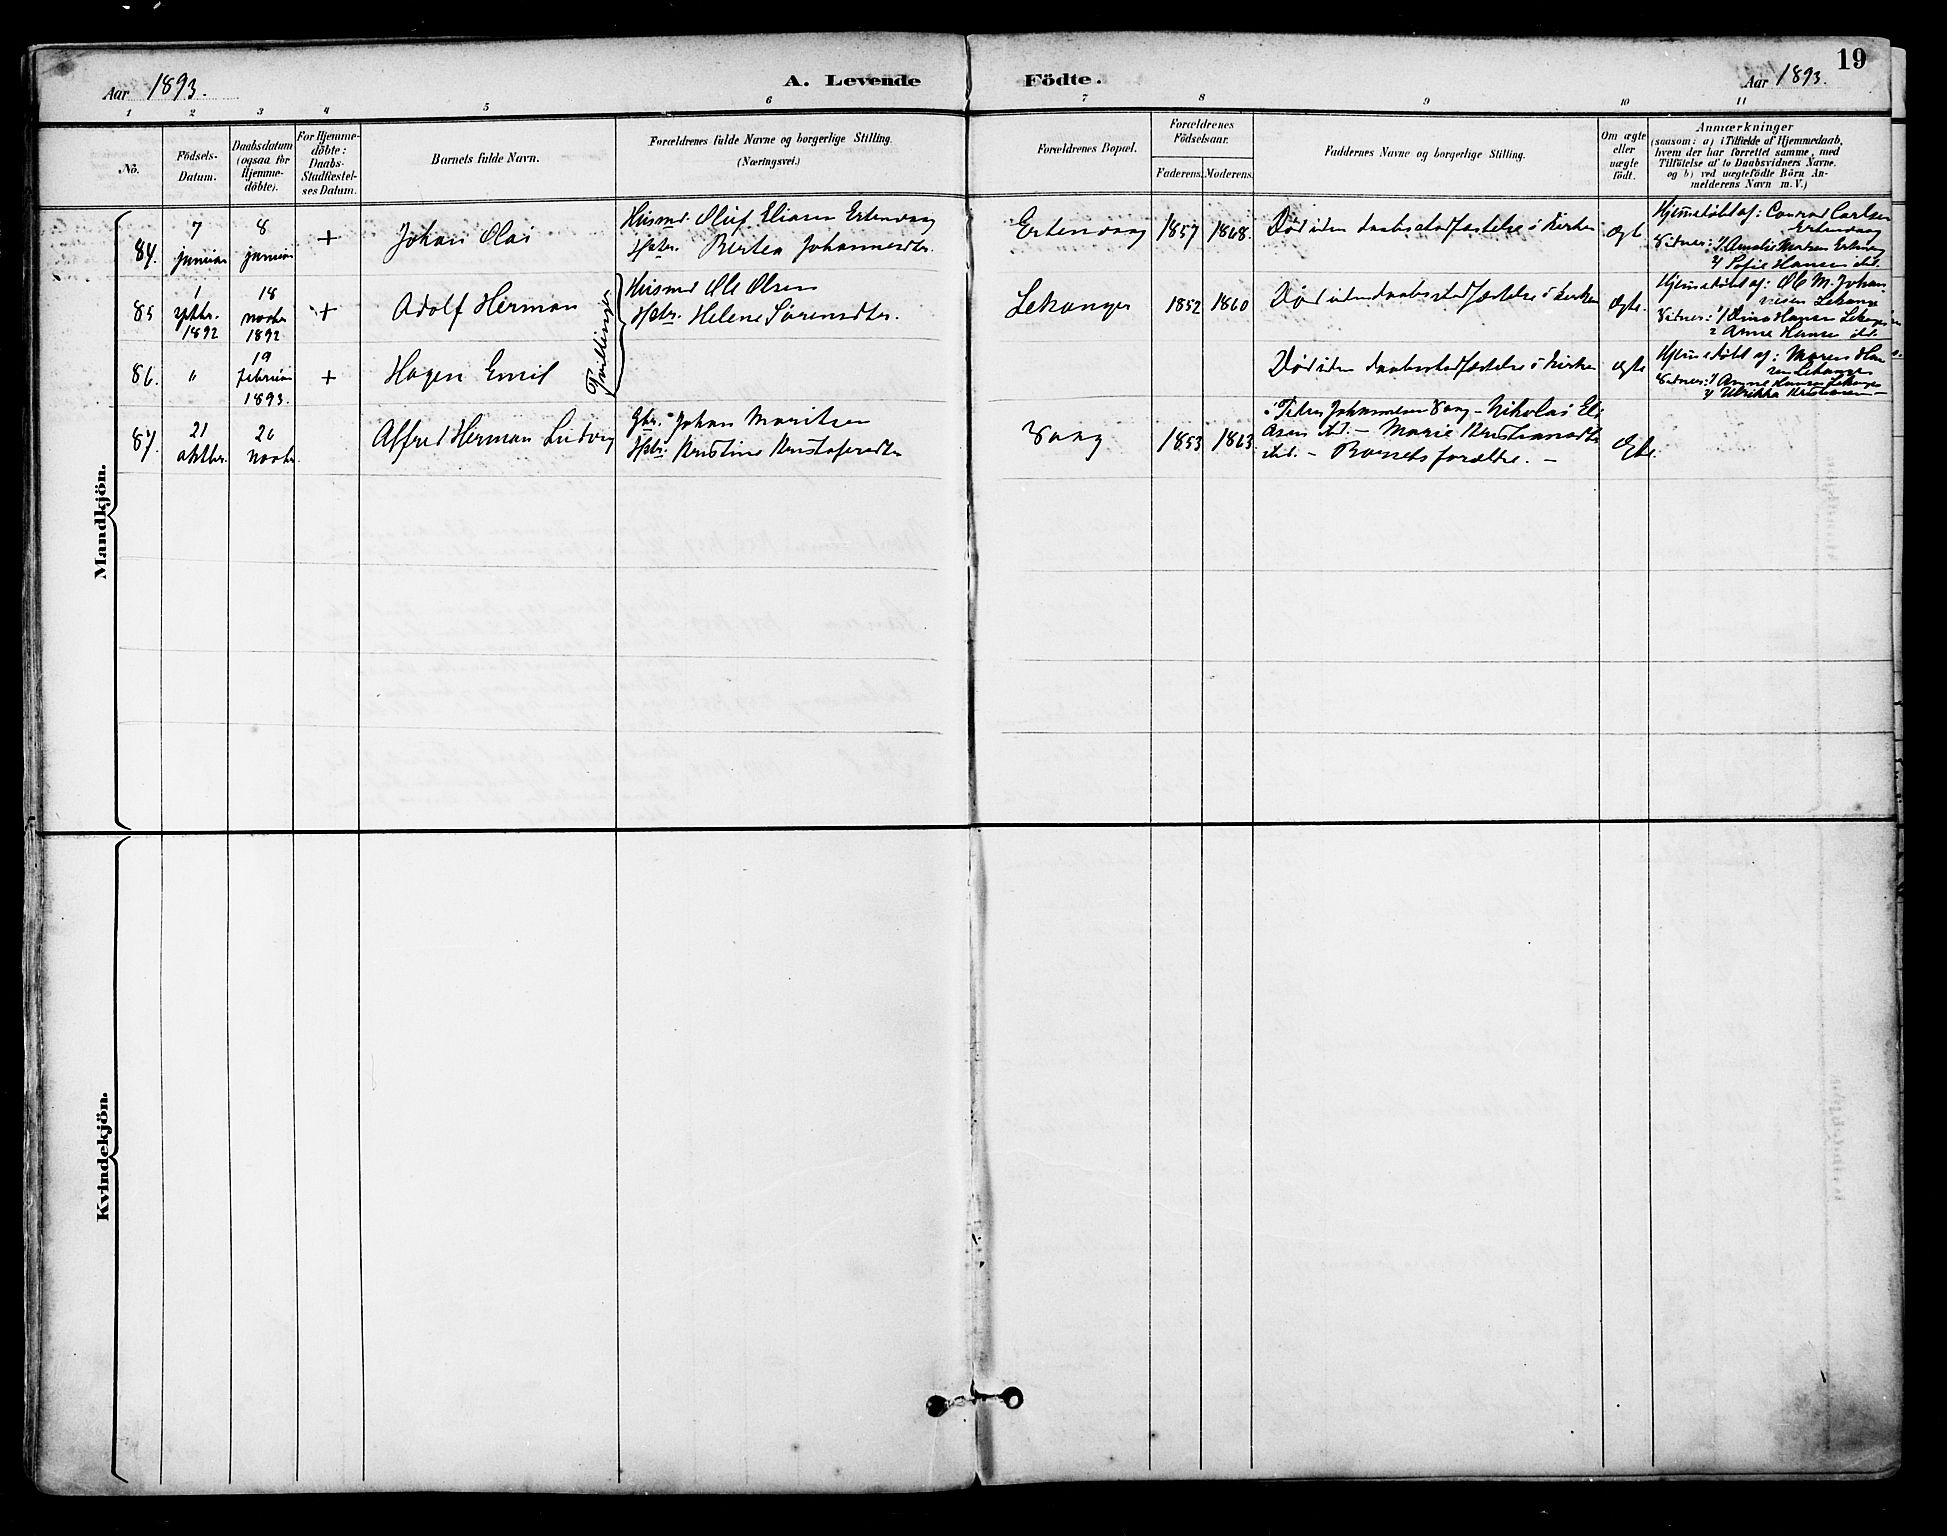 19
Aar 1893.
A. Levende Födte.
Aar 1893.
1 2 3 4 5 6 7 8 9 10 11
No.
Födsels-
Datum.
Daabsdatum
(ogsaa for
Hjemme-
döbte).
For Hjemme-
döbte:
Daabs-
Stadfæstel-
ses Datum.
Barnets fulde Navn.
Forældrenes fulde Navne og borgerlige Stilling.
(Næringsvei.)
Forældrenes Bopæl.
Forældrenes
Födselsaar.
Faderens. Moderens.
Faddernes Navne og borgerlige Stilling.
Om ægte
eller
uægte
födt.
Anmærkninger
(saasom: a) i Tilfælde af Hjemmedaab,
hvem der har forrettet samme, med
Tilföielse af to Daabsvidners Navne,
og b) ved uægtefödte Börn An-
melderens Navn m. V.)
Mandkjön.
84.
7
januar
8
januar
+
Johan Olai
Husmd Oluf Eliasen Ertenvaag
Hstr. Birtea Johannesdtr.
Ertenvaag
1857 1868.
Død uden daabsstadfæstelse i kirken
Ægte
Hjemmedøbt af: Conrad Carlsen
Ertenvaag
Vidner: 1/ Amalie Madsen Ertenvaag
2/ Sofie Hansen ibd.
85
1
1892
18
novbr.
1892
+
Adolf Herman
Tvillinger
Husmd Ole Olsen
Hstr. Helene Sørensdtr.
Lekanger
1852 1860
Død uden daabsstadfæstelse i kirken
Ægte.
Hjemmedøbt af: Ole M. Johan-
nesen Lekange
Vidner: 1/ Hansen
2 Anne Hansen ibd.
86.
"
19
februar
1893.
+
Hagen Emil
Død uden daabsstadfæstelse i kirken
Ægte
Hjemmedøbt af: Maren Han-
sen Lekange
Vidner: 1/ Anne Hansen Lekange
2/ Ulrikka Kristiansen
87.
21
oktbr.
26
novbr.
Alfred Herman Ludvig
Gbr. Johan Moritsen
Hstr. Kristine Kristofersdtr
Vaag
1853 1863.
Peder Johannesen Vaag – Nikolai Eli-
asen ibd. – Marie Kristiansdtr
ibd. – Barnets forældre. –
Ægte.
Kvindekjön.